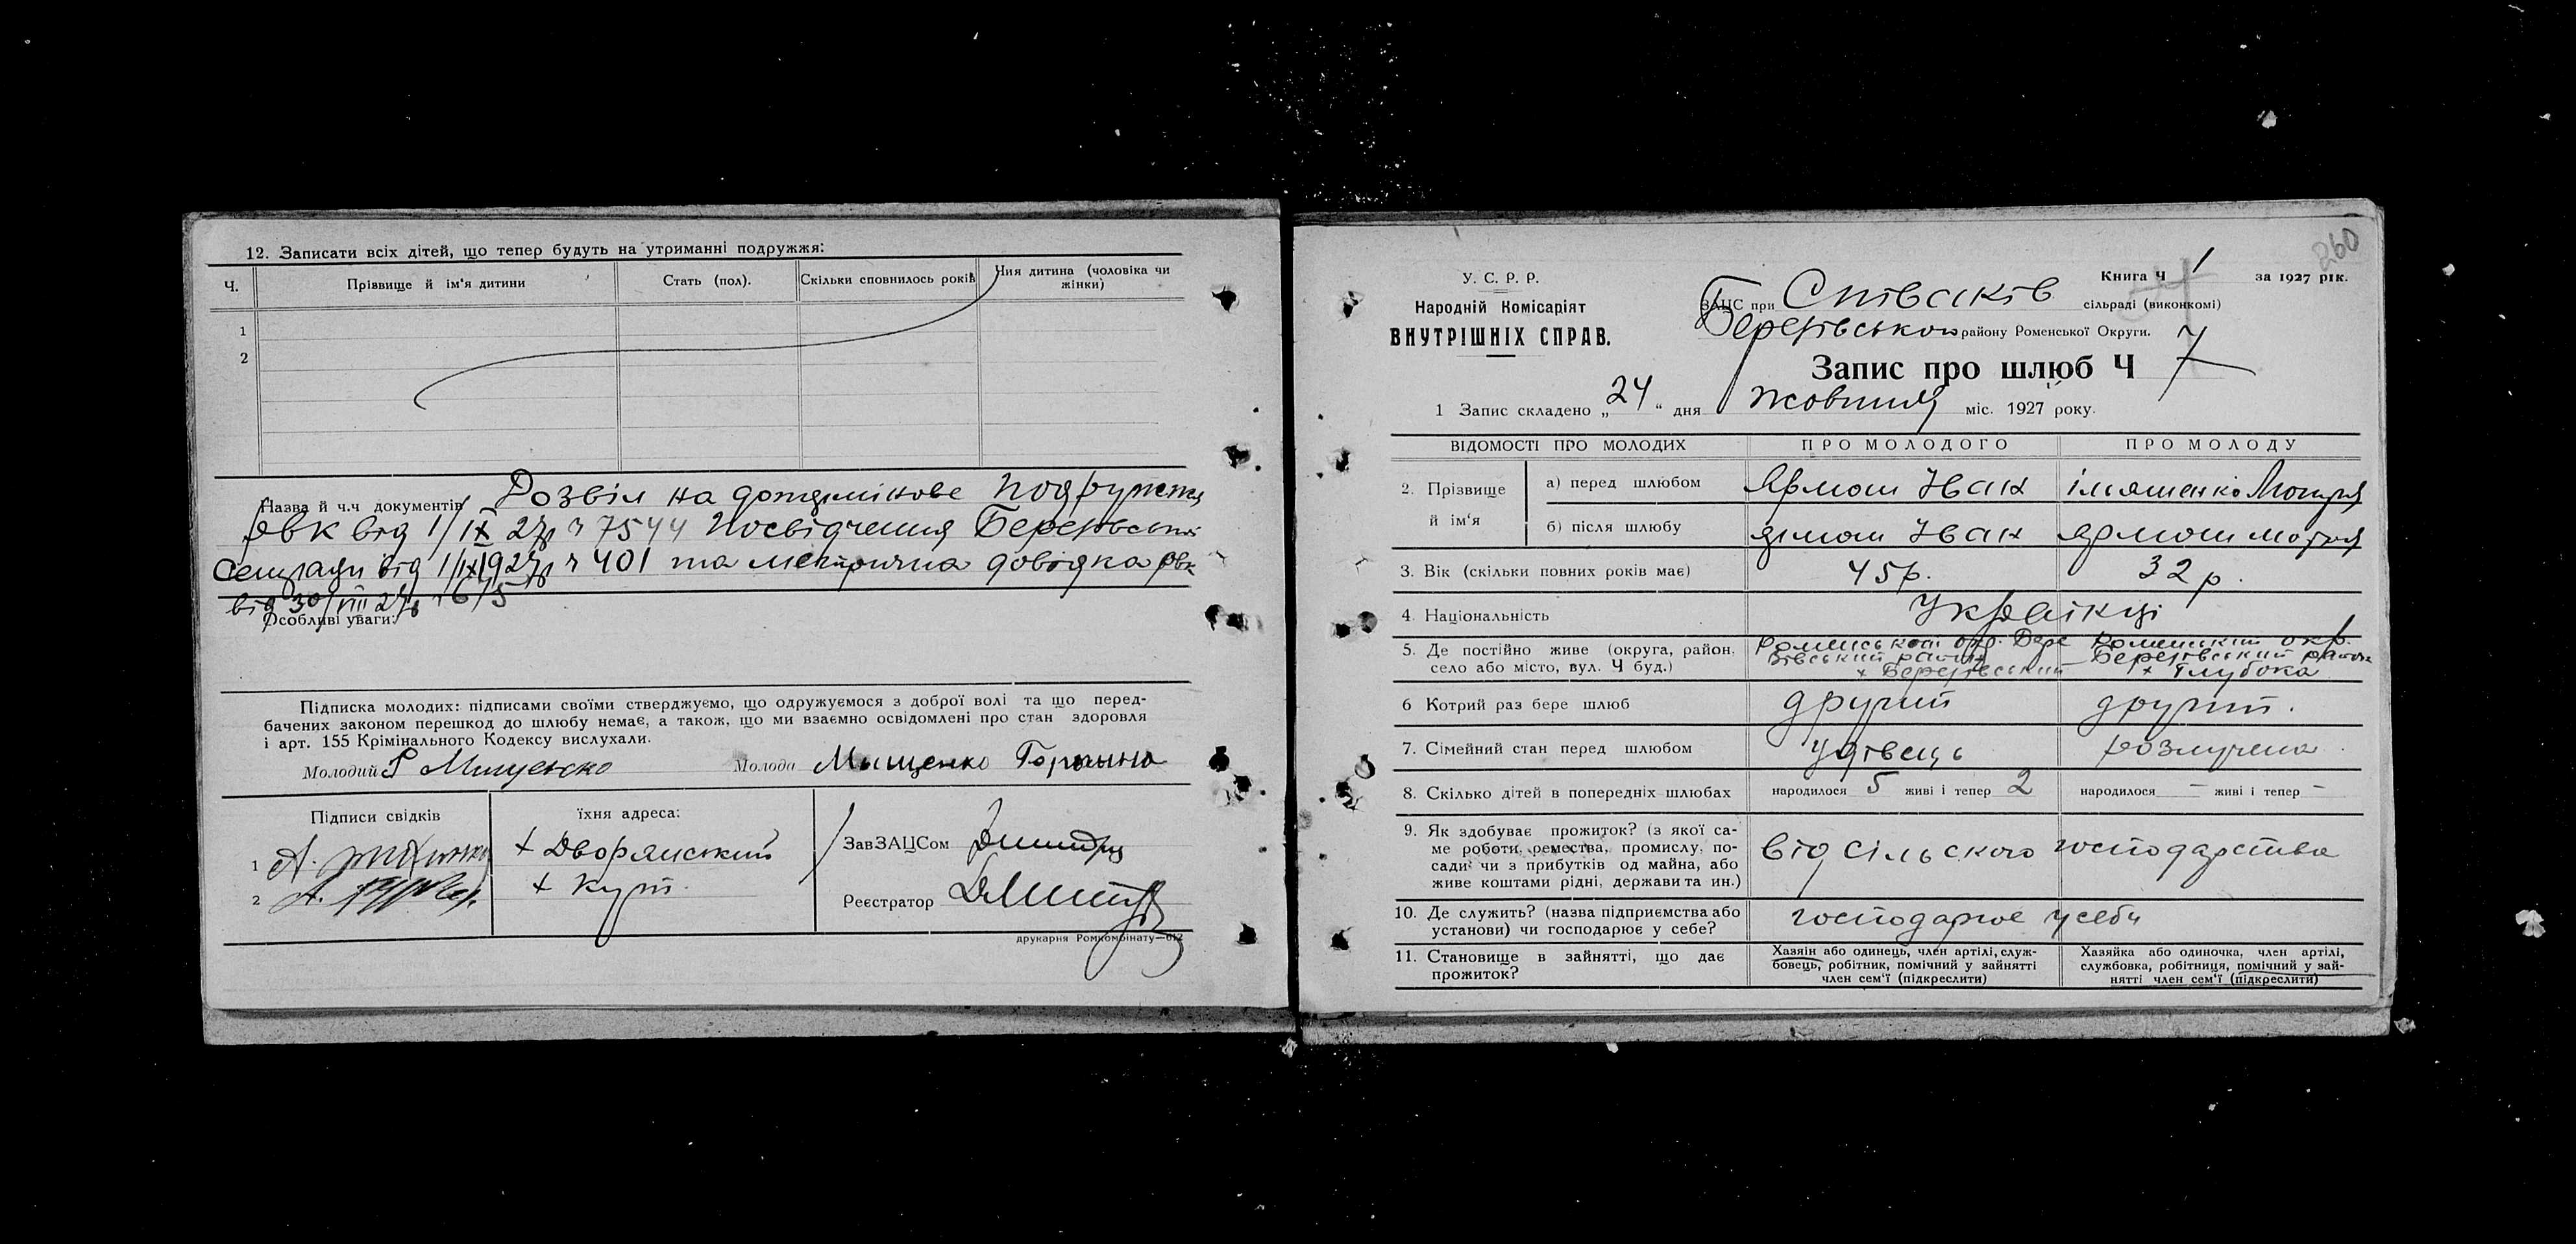 12. Записати всіх дітей, що тепер будуть на утриманні подружжя:
Ч. Прізвище й ім'я дитини Стать (пол). Скільки сповнилось років Чия дитина (чоловіка чи жінки)
1
2
Назва й ч.ч документів Розвід на подружжя
РВК від 1/IX 27р ч 7544 Посвідчення Березівської
Сельради від 1/IX 1927р ч 401 та метрична довідка РВК
від 30/VIII 27р
Особливі уваги:
Підписка молодих: підписами своїми стверджуємо, що одружуємося з доброї волі та що перед-
бачених законом перешкод до шлюбу немає, а також, що ми взаємно освідомлені про стан здоровля
і арт. 155 Крімінального Кодексу вислухали.
Молодий Мищенко Молода Мыщенко
Підписи свідків їхня адреса:
1 А. х Дворянський ЗавЗАЦСом
2 А. х Кут. Реєстратор
друкарня Ромкомбінату—612
260
У. С. Р. Р.
Народній Комісаріят
ВНУТРІШНІХ СПРАВ.
Книга Ч 1 за 1927 рік.
ЗАЦС при Співаків сільраді (виконкомі)
Березівського району Роменської Округи.
Запис про шлюб Ч 7
1 Запис складено „24“ дня жовтня міс. 1927 року.
ВІДОМОСТІ ПРО МОЛОДИХ ПРО МОЛОДОГО ПРО МОЛОДУ
2. Прізвище й ім'я а) перед шлюбом Ярмош Іван Мотря
б) після шлюбу Іван Ярмош Мотря
3. Вік (скільки повних років має) 45р. 32р.
4. Національність Українці
5. Де постійно живе (округа, район, Роменської окр. Бере Роменський окр.
село або місто, вул. Ч буд.) зівський район Березівський район
х Березівський х Глубока
6 Котрий раз бере шлюб другий другий.
7. Сімейний стан перед шлюбом удівець розлучена
8. Скілько дітей в попередніх шлюбах народилося 5 живі і тепер 2 народилося – живі і тепер –
9. Як здобуває прожиток? (з якої са-
ме роботи, ремества, промислу, по-
сади чи з прибутків од майна, або
живе коштами рідні, держави та ин.) від сільського господарства
10. Де служить? (назва підприємства або
установи) чи господарює у себе? господарює у себе
11. Становище в зайнятті, що дає
прожиток?
Хазяїн або одинець, член артілі, служ-
бовець, робітник, помічний у зайнятті
член сем'ї (підкреслити)
Хазяйка або одиночка, член артілі,
службовка, робітниця, помічний у зай-
нятті член сем'ї (підкреслити)